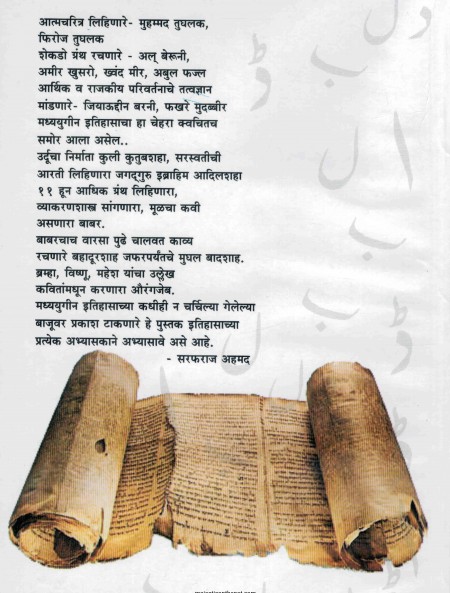 आत्मचरित्र लिहिणारे- मुहम्मद तुघलक,
फिरोज तुघलक
शेकडो ग्रंथ रचणारे - अल् बेरूनी,
अमीर खुसरो, ख्वंद मीर, अबुल फज्ल
आर्थिक व राजकीय परिवर्तनाचे तत्वज्ञान
मांडणारे- जियाऊद्दीन बरनी, फखरे मुदब्बीर
मध्ययुगीन इतिहासाचा हा चेहरा क्वचितच
समोर आला असेल..
उर्दूचा निर्माता कुली कुतुबशहा, सरस्वतीची
आरती लिहिणारा जगद्गुरु इब्राहिम आदिलशहा
११ हून आधिक ग्रंथ लिहिणारा,
व्याकरणशास्त्र सांगणारा, मूळचा कवी
असणारा बाबर.
बाबरचाच वारसा पुढे चालवत काव्य
रचणारे बहादूरशाह जफरपर्यंतचे मुघल बादशाह.
ब्रम्हा, विष्णू, महेश यांचा उल्लेख
कवितांमधून करणारा औरंगजेब.
मध्ययुगीन इतिहासाच्या कधीही न चर्चिल्या गेलेल्या
बाजूवर प्रकाश टाकणारे हे पुस्तक इतिहासाच्या
प्रत्येक अभ्यासकाने अभ्यासावे असे आहे.
- सरफराज अहमद